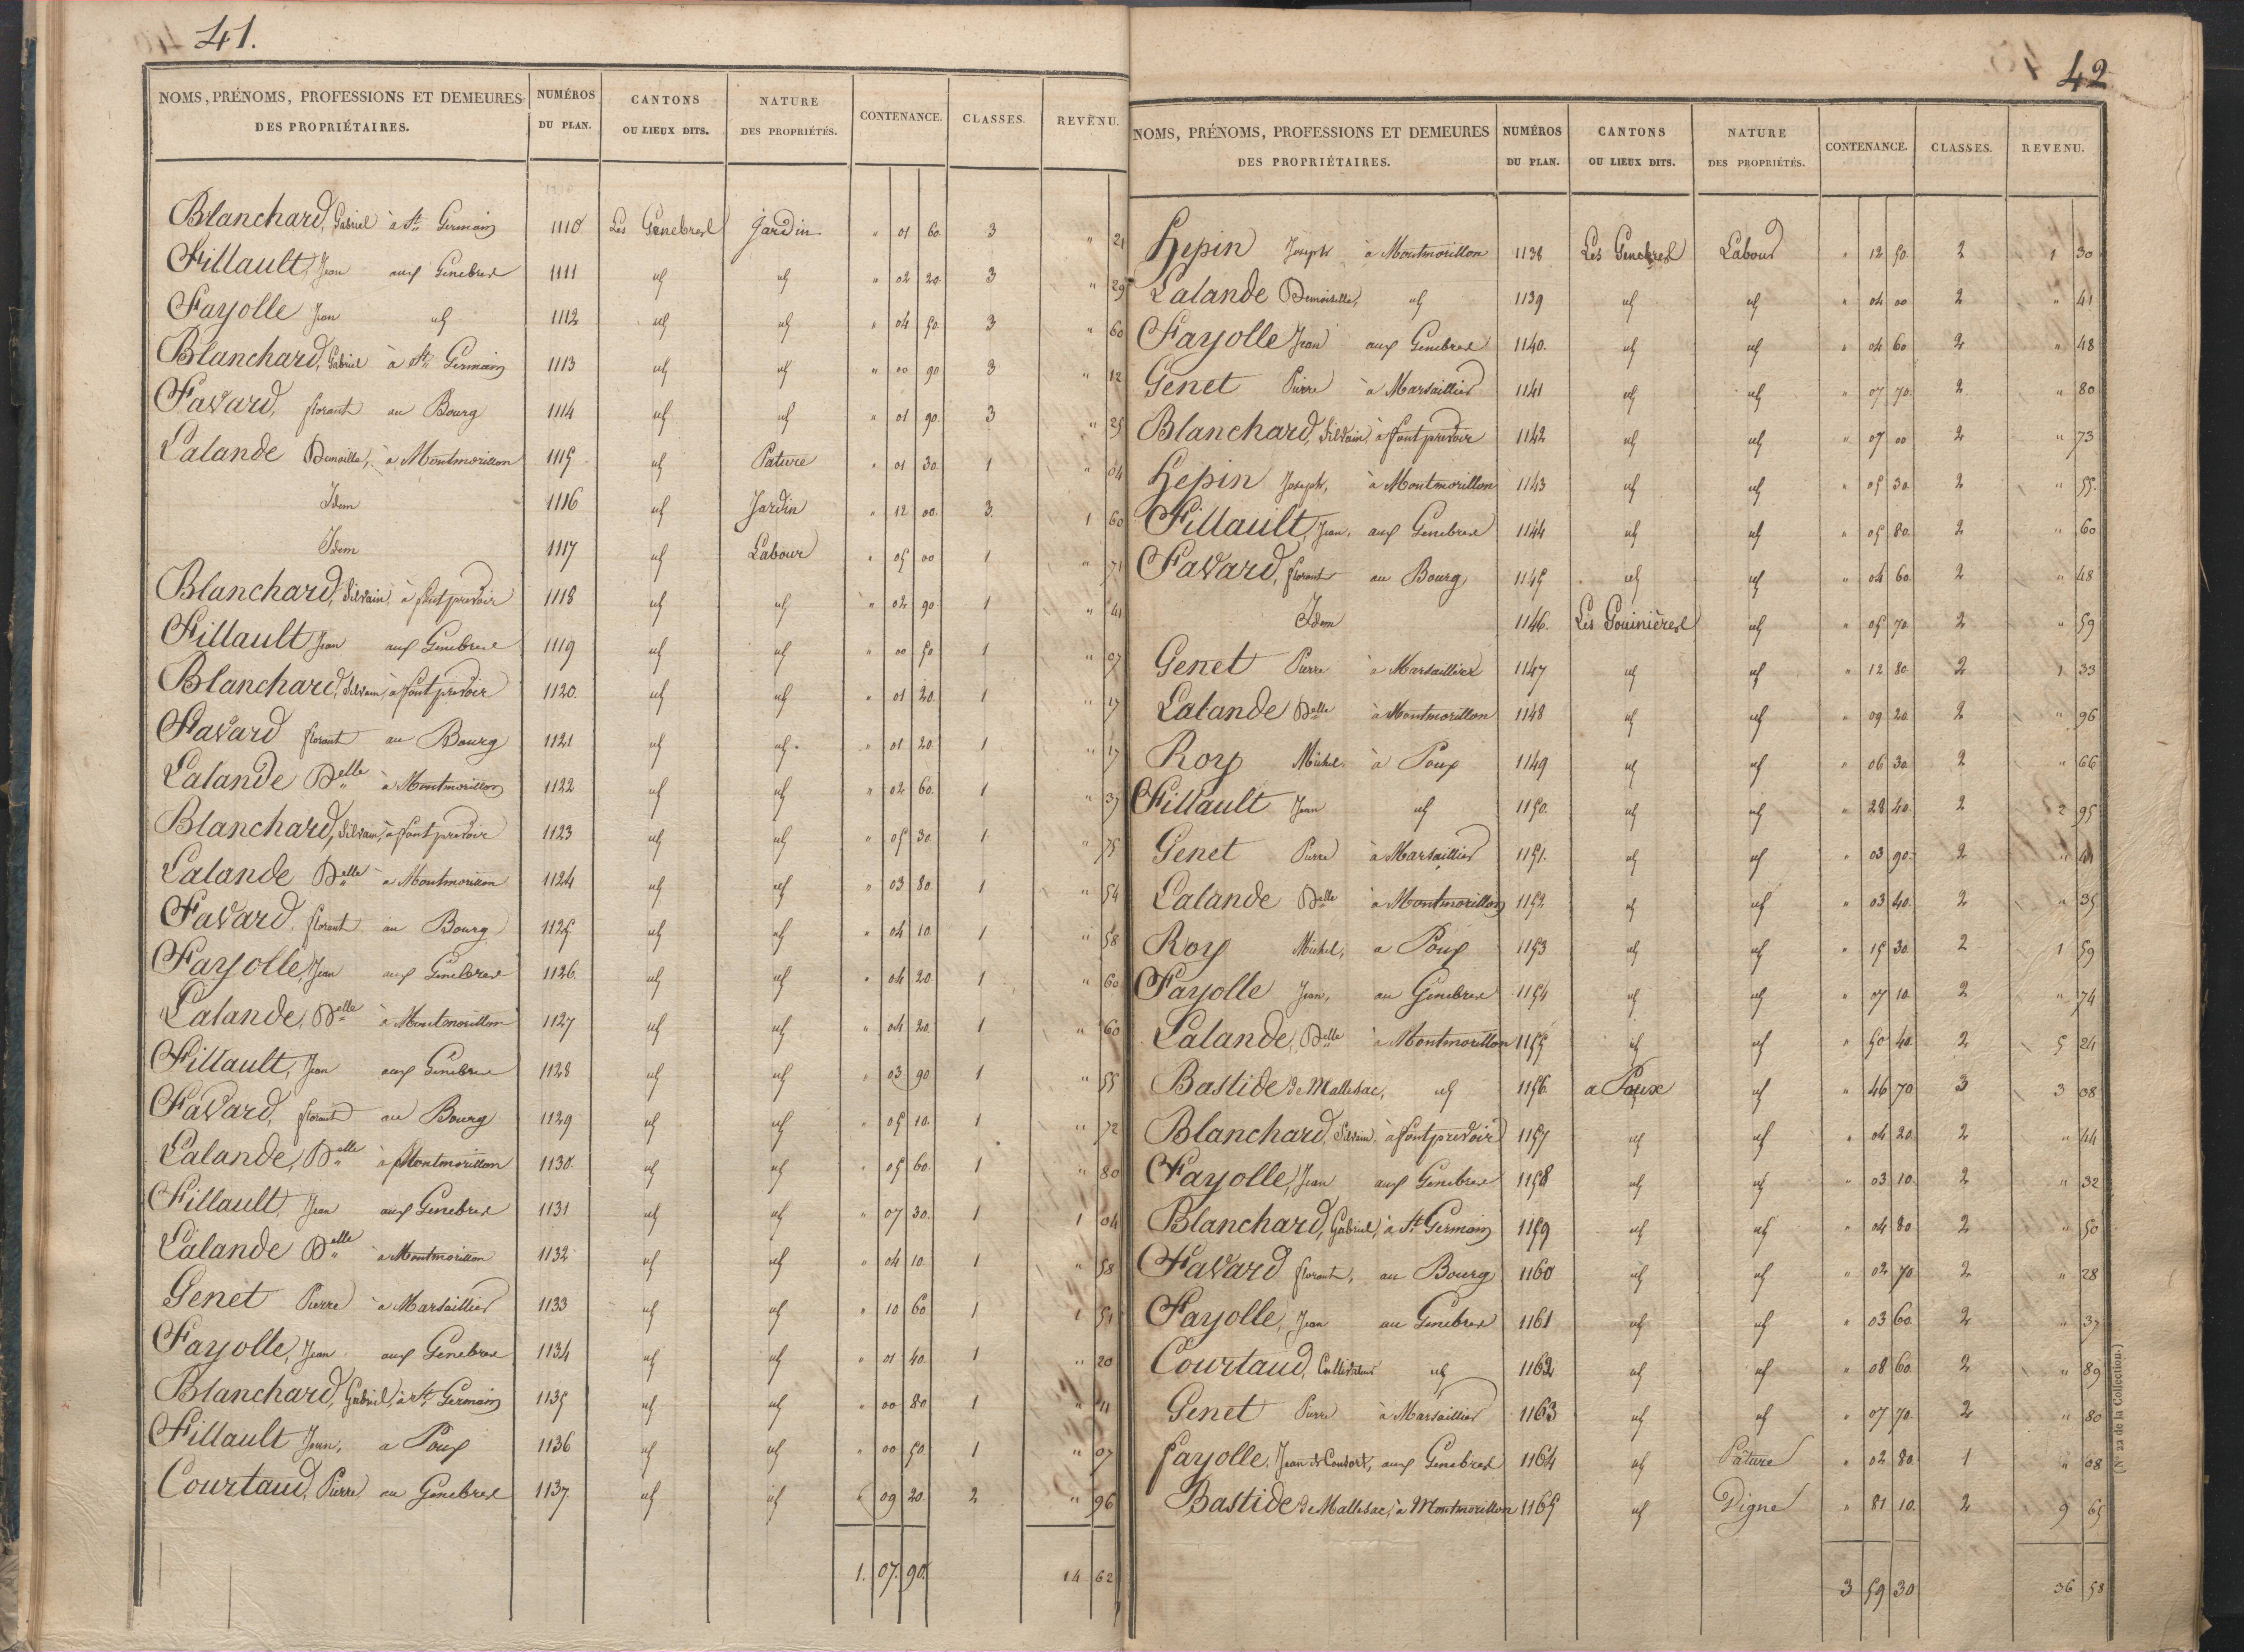 41.
NOMS, PRÉNOMS, PROFESSIONS ET DEMEURES DES PROPRIÉTAIRES. NUMÉROS DU PLAN. CANTONS OU LIEUX DITS. NATURE DES PROPRIÉTÉS. CONTENANCE. CLASSES. REVENU.
Blanchard, Gabriel à St Germain 1110 Les Genebres Jardin " 01 60 3 " 21
Fillault, Jean aux Genebres 1111 id id " 02 20 3 " 29
Fayolle Jean id 1112 id id " 04 50 3 " 60
Blanchard, Gabriel à St Germain 1113 id id " 00 90 3 " 12
Favard, florant au Bourg 1114 id id " 01 90 3 " 25
Lalande Demoiselle, à Montmorillon 1115 id Pature " 01 30 1 " 04
Idem 1116 id Jardin " 12 00 3 1 60
Idem 1117 id Labour " 05 00 1 " 71
Blanchard, Silvain à fontprevoir 1118 id id " 02 90 1 " 41
Fillault Jean aux Genebres 1119 id id " 00 50 1 " 07
Blanchard, Silvain, à fontprevoir 1120 id id " 01 20 1 " 17
Favard florant au Bourg 1121 id id " 01 20 1 " 17
Lalande Delle à Montmorillon 1122 id id " 02 60 1 " 37
Blanchard, Silvain, à fontprevoir 1123 id id " 05 30 1 " 75
Lalande Delle à Montmorillon 1124 id id " 03 80 1 " 54
Favard, florant au Bourg 1125 id id " 04 10 1 " 58
Fayolle, Jean aux Genebres 1126 id id " 04 20 1 " 60
Lalande, Delle à Montmorillon 1127 id id " 04 20 1 " 60
Fillault, Jean aux Genebres 1128 id id " 03 90 1 " 55
Favard, florant au Bourg 1129 id id " 05 10 1 " 72
Lalande, Delle à Montmorillon 1130 id id " 05 60 1 " 80
Fillault, Jean aux Genebres 1131 id id " 07 30 1 1 04
Lalande Delle à Montmorillon 1132 id id " 04 10 1 " 58
Genet Pierre à Marsaillier 1133 id id " 10 60 1 1 51
Fayolle, Jean aux Genebres 1134 id id " 01 40 1 " 20
Blanchard, Gabriel, à St Germain 1135 id id " 00 80 1 " 11
Fillault Jean, a Poux 1136 id id " 00 50 1 " 07
Courtaud, Pierre au Genebres 1137 id id " 09 20 2 " 96
1. 07. 90. 14 62
42
NOMS, PRÉNOMS, PROFESSIONS ET DEMEURES DES PROPRIÉTAIRES. NUMÉROS DU PLAN. CANTONS OU LIEUX DITS. NATURE DES PROPRIÉTÉS. CONTENANCE. CLASSES. REVENU.
Hepin Joseph à Montmorillon 1138 Les Genebres Labour " 12 50 2 1 30
Lalande Demoiselle, id 1139 id id " 04 00 2 " 41
Fayolle Jean aux Genebres 1140. id id " 04 60 2 " 48
Genet Pierre à Marsaillier 1141 id id " 07 70 2 " 80
Blanchard, Silvain, à fontprevoir 1142 id id " 07 00 2 " 73
Hepin Joseph, à Montmorillon 1143 id id " 05 30 2 " 55
Fillault, Jean, aux Genebres 1144 id id " 05 80 2 " 60
Favard, florant au Bourg 1145 id id " 04 60 2 " 48
Idem 1146. Les Gouinières id " 05 70 2 " 59
Genet Pierre à Marsaillier 1147 id id " 12 80 2 1 33
Lalande Delle à Montmorillon 1148 id id " 09 20 2 " 96
Roy Michel à Poux 1149 id id " 06 30 2 " 66
Fillault Jean id 1150. id id " 28 40 2 2 95
Genet Pierre à Marsaillier 1151. id id " 03 90 2 " 41
Lalande Delle à Montmorillon 1152 id id " 03 40 2 " 35
Roy Michel, a Poux 1153 id id " 15 30 2 1 59
Fayolle Jean, au Genebres 1154 id id " 07 10 2 " 74
Lalande, Delle à Montmorillon 1155 id id " 50 40 2 5 24
Bastide de Mallesac, id 1156 a Poux id " 46 70 3 3 08
Blanchard, Silvain, à fontprevoir 1157 id id " 04 20 2 " 44
Fayolle, Jean aux Genebres 1158 id id " 03 10 2 " 32
Blanchard, Gabriel, à St Germain 1159 id id " 04 80 2 " 50
Favard florant, au Bourg 1160 id id " 02 70 2 " 28
Fayolle, Jean au Genebres 1161 id id " 03 60 2 " 37
Courtaud, Cultivateur id 1162 id id " 08 60 2 " 89
Genet Pierre à Marsaillier 1163 id id " 07 70 2 " 80
fayolle, Jean & Consort, aux Genebres 1164 id Pâture " 02 80 1 " 08
Bastide de Mallesac, à Montmorillon 1165 id Vigne " 81 10 2 9 65
3 59 30 36 58
(N° 22 de la Collection.)